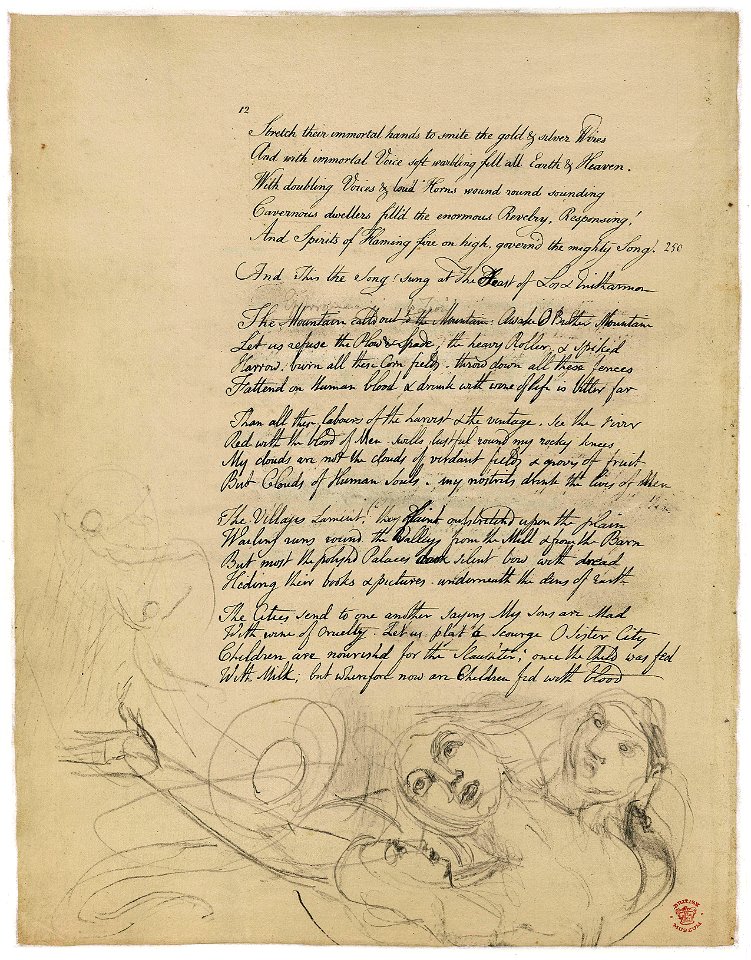 12
Stretch their immortal hands to smite the gold & silver Wires
And with immortal Voice soft warbling fill all Earth & Heaven.
With doubling Voices & loud Horns wound round sounding
Cavernous dwellers fill'd the enormous Revelry, Responsing!
And Spirits of Flaming fire on high, govern'd the mighty Song. 250
And This the Song! sung at The Feast of Los & Enitharmon
The Mountain calld out to the Mountain Awake O Brother Mountain
Let us refuse the Plow & Spade, the heavy Roller & spiked
Harrow. burn all these Corn fields. throw down all these fences
Fattend on Human blood & drunk with wine of life is better far
Than all these labours of the harvest & the vintage. See the river
Red with the blood of Men. swells lustful round my rocky knees
My clouds are not the clouds of verdant fields & groves of fruit
But Clouds of Human Souls. my nostrils drink the lives of Men
The Villages Lament. they faint outstretchd upon the plain
Wailing runs round the Valleys from the Mill & from the Barn
But most the polishd Palaces dark silent bow with dread
Hiding their books & pictures. underneath the dens of Earth
The Cities send to one another saying My sons are Mad
With wine of cruelty. Let us plat a scourge O Sister City
Children are nourishd for the Slaughter; once the Child was fed
With Milk; but wherefore now are Children fed with blood
BRITISH MUSEUM